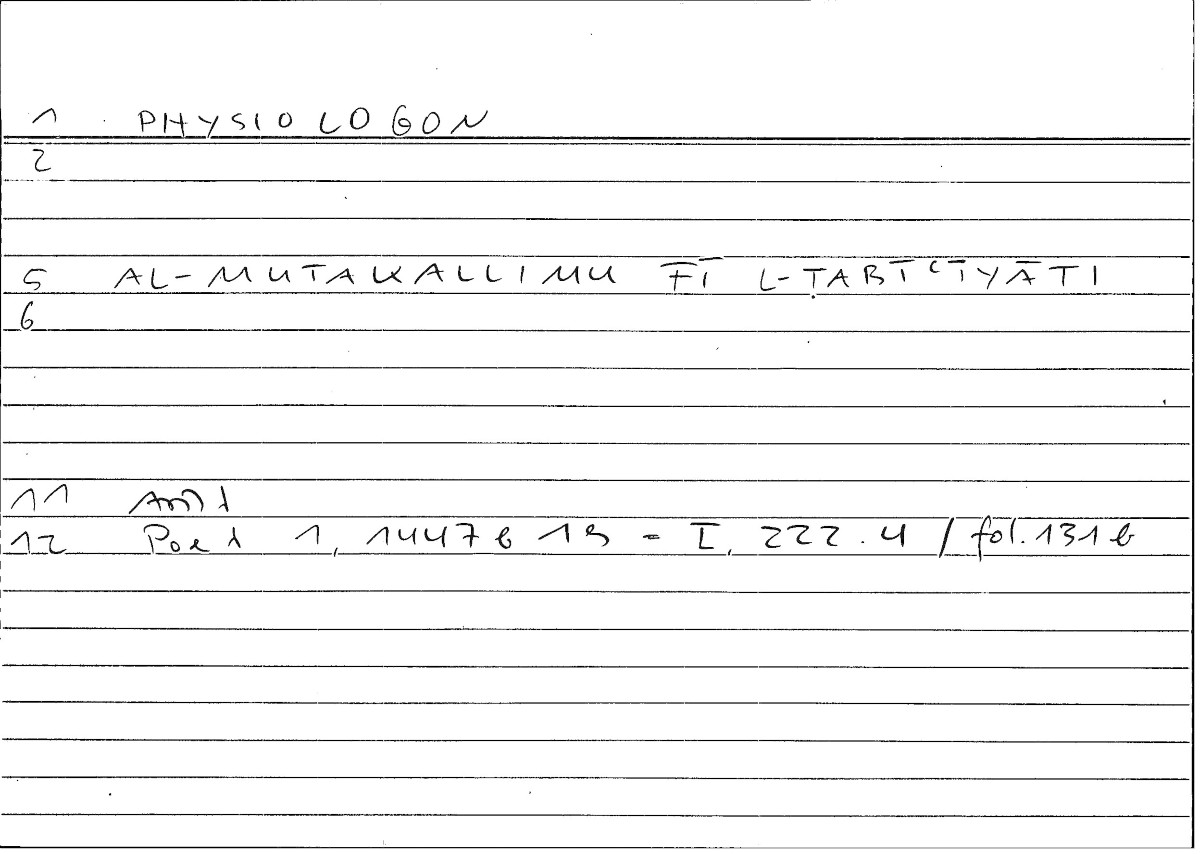 1 PHYSIOLOGON
2
5 AL-MUTAKALLIMU FĪ L-ṬABĪʿĪYĀTI
6
11 Arist
12 Poet 1, 1447b 19 = I, 222.4 / fol. 131b